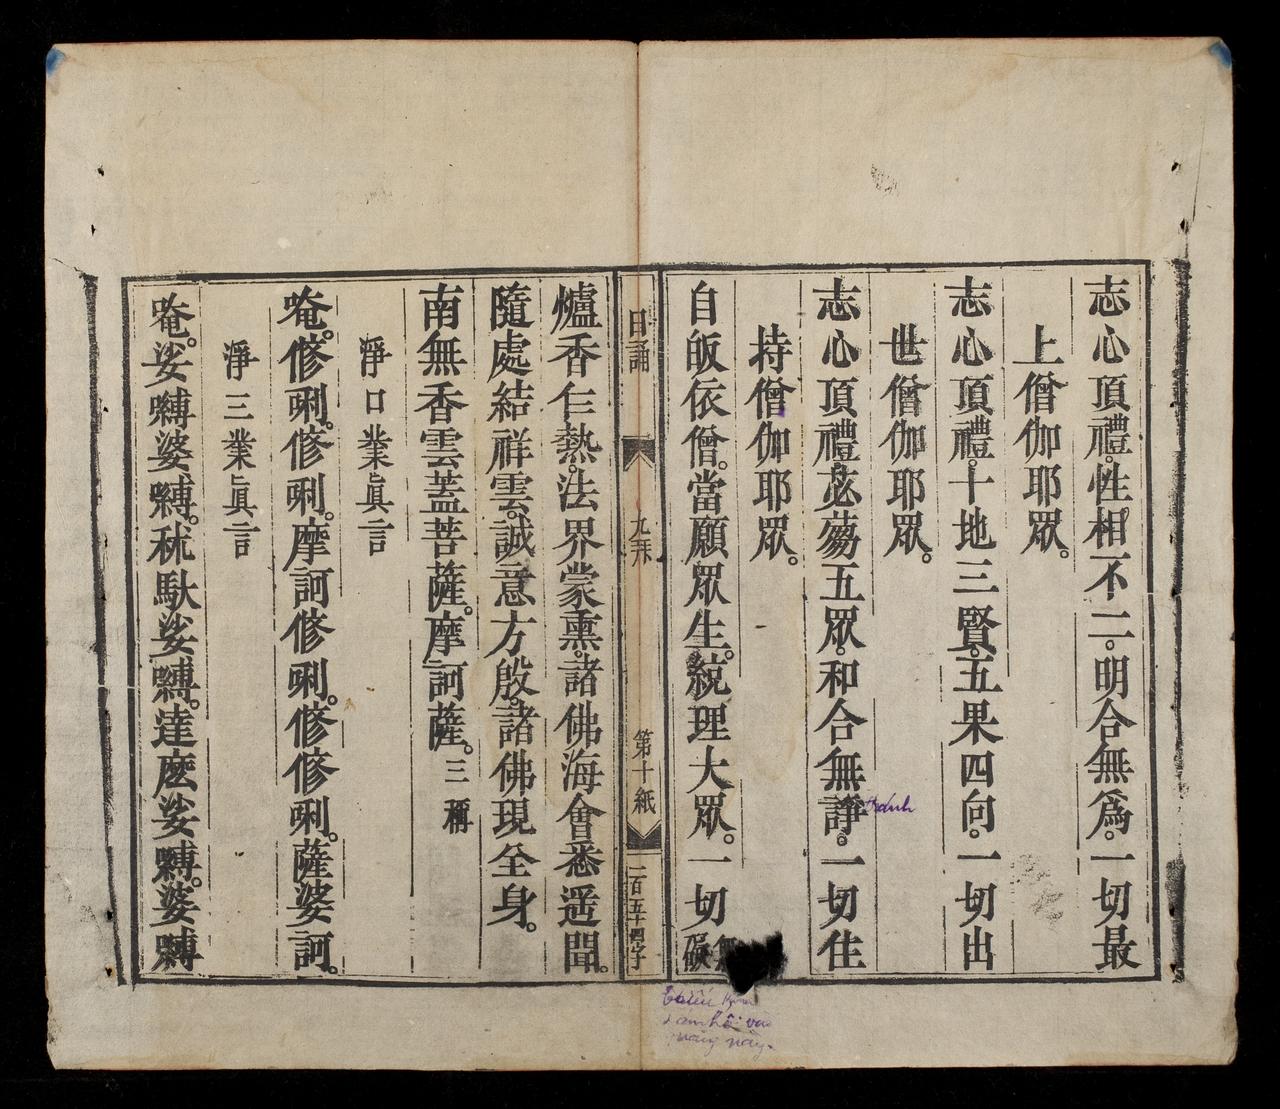 志心頂禮。性相不二。明合無爲。一切最
上僧伽耶眾。
志心頂禮。十地三賢。五果四向。一切出
世僧伽耶眾。
志心頂禮。苾蒭五眾。和合無諍。一切住
持僧伽耶眾。
自皈依僧。當願眾生。統理大眾。一切無礙
tránh
日誦
九拜
第十紙
二百五十四字
爐香乍熱。法界蒙熏。諸佛海會悉遥聞。
隨處結祥雲。誠意方殷。諸佛現全身。
南無香雲蓋菩薩。摩訶薩。三稱
淨口業眞言
唵。修唎。修唎。摩訶修唎。修修唎。薩婆訶。
淨三業眞言
唵。娑嚩婆嚩。秫馱娑嚩。達麽娑嚩。婆嚩
này.